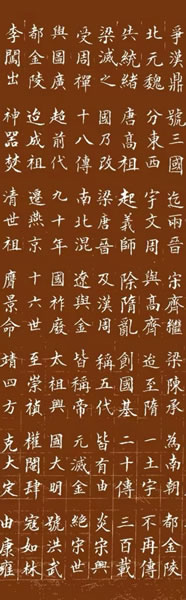 爭漢鼎號三國迄兩晉宋齊繼梁陳承為南朝都金陵
北元魏分東西宇文周與高齊迨至隋一土宇不再傳
失統緒唐高祖起義師除隋亂創國基二十傳三百載
梁滅之國乃改梁唐晉及漢周稱五代皆有由炎宋興
受周禪十八傳南北混遼與金皆稱帝元滅金絕宋世
輿圖廣超前代九十年國祚廢太祖興國大明號洪武
都金陵迨成祖遷燕京十六世至崇禎權閹肆寇如林
李闖出神器焚清世祖膺景命靖四方克大定由康雍